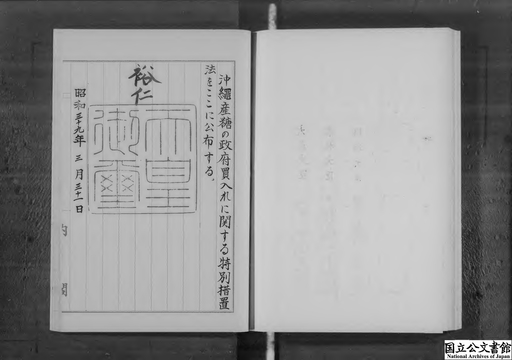 沖繩産糖の政府買入れに関する特別措置
法をここに公布する。
裕仁
天皇
御璽
昭和三十九年三月三十一日
内閣
国立公文書館
National Archives of Japan